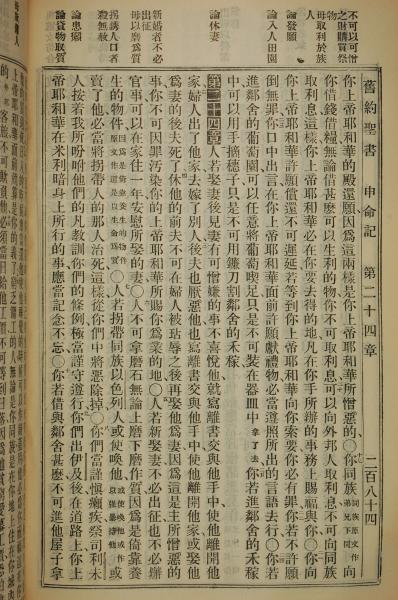 舊約聖書 申命記 第二十四章 二百八十四
不可以可憎
之財購買祭
物
毋取利於族
人
論發願
論入人田園
論休妻
新婚者不必
出征
毋以磨爲質
拐誘人口者
殺無赦
論患癩
論貨物取質
你上帝耶和華的殿還願因爲這兩樣是你上帝耶和華所憎惡的○你同族向
你借錢借糧無論借甚麼可以生利的物你不可取利息可以向外邦人取利息不可向同族
取利息這樣你上帝耶和華必在你要去得的地凡在你手所辦的事務上賜福與你○你向
你上帝耶和華許願償還不可遲延若等到你上帝耶和華向你索要你必有罪你若不許願
倒無罪你口中出言在你上帝耶和華面前許願獻禮物必當遵照所出的言語去行○你若
進鄰舍的葡萄園可以任意將葡萄喫足只是不可裝在器皿中拿了去你若進鄰舍的禾稼
中可以用手摘穗子只是不可用鐮刀割鄰舍的禾稼
第二十四章人若娶妻後見妻有可憎嫌的事不喜悅他就寫離書交與他手中使他離開他
家婦人出了他家去嫁了別人後夫也厭惡他也寫離書交與他手中使他離開他家或娶他
爲妻的後夫死了休他的前夫不可在婦人被玷辱之後再娶他爲妻因爲這是主所憎惡的
事你不可因罪汚染你的上帝耶和華所賜你爲業的地○人若新娶妻不必出征也不必辦
官事可以在家住一年安慰所娶的妻○人不可拿磨石無論上磨下磨作質因爲是倚靠養
生的物件○人若拐帶同族以色列人或使喚他或
賣了他必當將拐帶人的那人治死這樣從你們中將惡除掉○你們當謹愼癩疾祭司利未
人按着我所吩咐他們的凡教訓你們的條例極當謹守遵行你們出伊及後在道路上你上
帝耶和華在米利暗身上所行的事應當記念不忘○你若借與鄰舍甚麼不可進他屋子拿